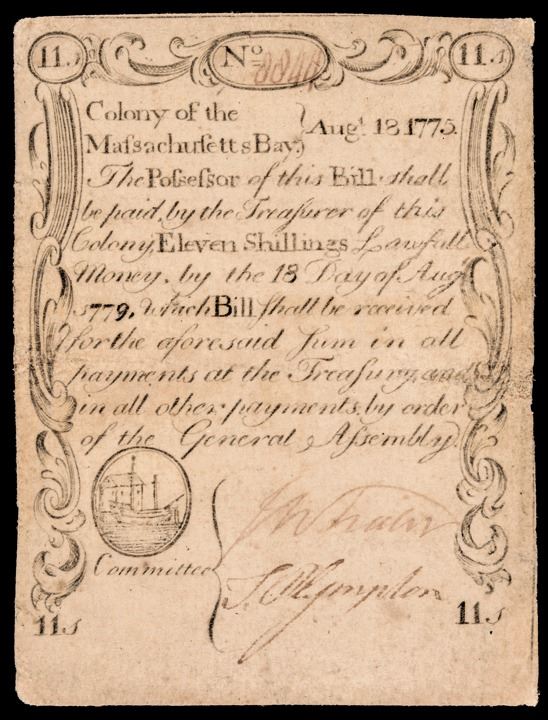 11.s
No 8844
11.s
Colony of the
Maſsachuſetts Bay,
} Augt. 18 1775.
The Poſseſsor of this Bill ſhall
be paid, by the Treaſurer of this
Colony, Eleven Shillings Lawfull
Money, by the 18 Day of Augt
1779. which Bill ſhall be received
for the aforesaid ſum in all
payments at the Treaſury, and
in all other payments, by order
of the General Aſsembly.
Committee
11s
11s